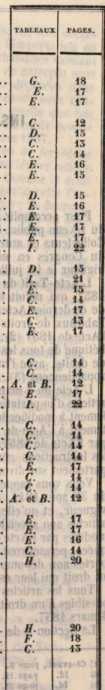 TABLEAUX PAGES.
G. 18
E. 17
E. 17
C. 12
D. 15
C. 13
C. 14
E. 16
E. 15
D. 15
E. 16
E. 17
E. 17
E. 17
I. 22
D. 15
I. 21
D. 15
C. 14
E. 17
C. 13
E. 17
C. 14
C. 14
A. et B. 12
E. 17
I. 22
C. 14
C. 14
C. 14
C. 14
E. 17
C. 14
C. 14
A. et B. 12
E. 17
E. 17
E. 16
C. 14
H. 20
H. 20
F. 18
C. 15